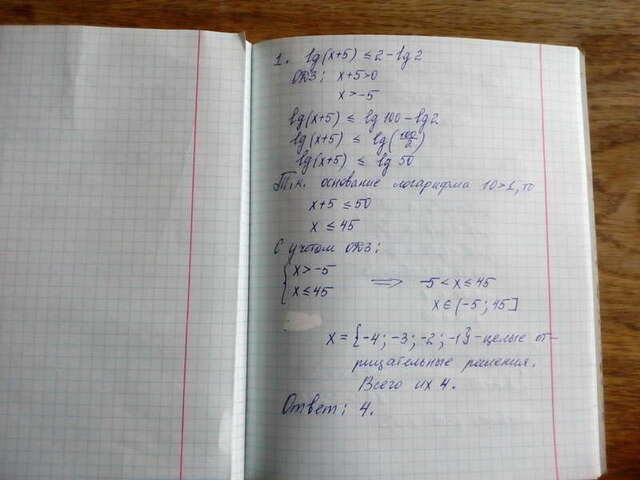 1. lg(x+5) ≤ 2 - lg2
ОДЗ: x+5>0
x>-5
lg(x+5) ≤ lg100 - lg2
lg(x+5) ≤ lg(100/2)
lg(x+5) ≤ lg 50
Т.к. основание логарифма 10>1, то
x+5 ≤ 50
x ≤ 45
С учётом ОДЗ:
{ x>-5
x≤45 ⟹ -5<x≤45
x∈(-5; 45]
x = {-4; -3; -2; -1} - целые от-
рицательные решения.
Всего их 4.
Ответ: 4.